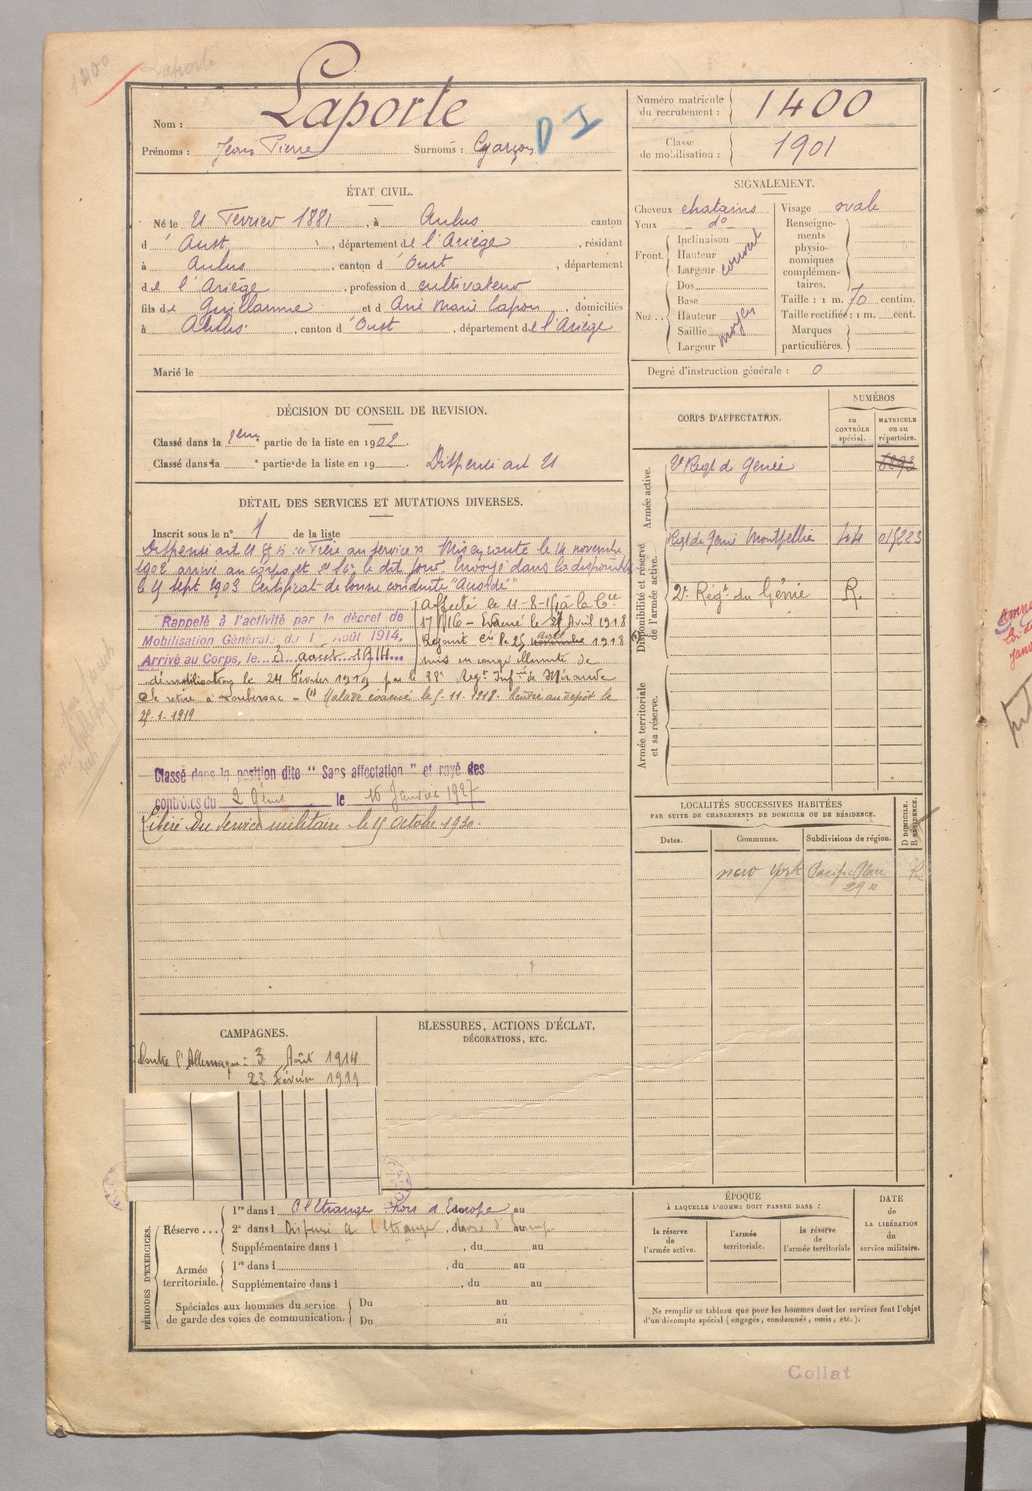 1400
Laporte
Nom : Laporte
Prénoms : Jean Pierre Surnoms : Garçon
D I
Numéro matricule du recrutement : 1400
Classe de mobilisation : 1901
ÉTAT CIVIL.
Né le 21 Février 1881, à Aulus canton
d'Oust, département de l'Ariège, résidant
à Aulus, canton d'Oust, département
de l'Ariège, profession d cultivateur
fils de Guillaume et d Domiciliés
à Aulus, canton d'Oust, département de l'Ariège
Marié le
SIGNALEMENT.
Cheveux chatains
Yeux do
Front. Inclinaison
Hauteur
Largeur
couvert
Nez. Dos
Base
Hauteur
Saillie
Largeur
moyen
Visage ovale
Renseignements physionomiques complémentaires.
Taille : 1 m. 70 centim.
Taille rectifiée : 1 m. cent.
Marques particulières.
Degré d'instruction générale : 0
DÉCISION DU CONSEIL DE REVISION.
Classé dans la 1ère partie de la liste en 1902
Classé dans la e partie de la liste en 19 Dispensé art 21
DÉTAIL DES SERVICES ET MUTATIONS DIVERSES.
Inscrit sous le n° 1 de la liste
Dispensé art 21 § 5 "frère au service". Mis en route le 14 novembre
1902 arrivé au corps et le dit jour. Envoyé dans la disponibilité
le sept 1903 Certificat de bonne conduite "Accordé"
Rappelé à l'activité par le décret de
Mobilisation Générale du 1er Août 1914,
Arrivé au Corps, le 3 août 1914
Affecté le 11-8-14 à la Cie
17/16 - Evacué le Avril 1918
Rejoint Cie le 25 1918
mis en congé illimité de
démobilisation le 24 Février 1919 par le 88e Régt Infie de Mirande
Se retire à Loubersac - (1) Malade évacué le 5-11-1918. Rentré au dépôt le
1-1919
Classé dans la position dite "Sans affectation" et rayé des
contrôles du 2 Génie le 16 Janvier 1927
Libéré du service militaire le Octobre 1930.
CORPS D'AFFECTATION.
NUMÉROS
au CONTRÔLE spécial.
MATRICULE ou au répertoire.
Armée active.
2e Régt de Génie
Disponibilité et réserve de l'armée active.
Régt du Génie Montpellier 44
2e Régt du Génie R.
Armée territoriale et sa réserve.
LOCALITÉS SUCCESSIVES HABITÉES
PAR SUITE DE CHANGEMENTS DE DOMICILE OU DE RÉSIDENCE.
Dates. Communes. Subdivisions de région. D DOMICILE. R RÉSIDENCE.
New York Pacific Place 29 R
CAMPAGNES.
Contre l'Allemagne : 3 Août 1914
23 Février 1919
BLESSURES, ACTIONS D'ÉCLAT,
DÉCORATIONS, ETC.
PÉRIODES D'EXERCICES.
Réserve... 1re dans l à l'Etranger hors d'Europe au
2e dans l Dispensé à l'Etranger, hors d'Europe
Supplémentaire dans l , du au
Armée territoriale. 1re dans l , du au
Supplémentaire dans l , du au
Spéciales aux hommes du service de garde des voies de communication. Du au
Du au
ÉPOQUE
À LAQUELLE L'HOMME DOIT PASSER DANS :
la réserve de l'armée active.
l'armée territoriale.
la réserve de l'armée territoriale
DATE de LA LIBÉRATION du service militaire.
Ne remplir ce tableau que pour les hommes dont les services font l'objet
d'un décompte spécial (engagés, condamnés, omis, etc.).
Collat